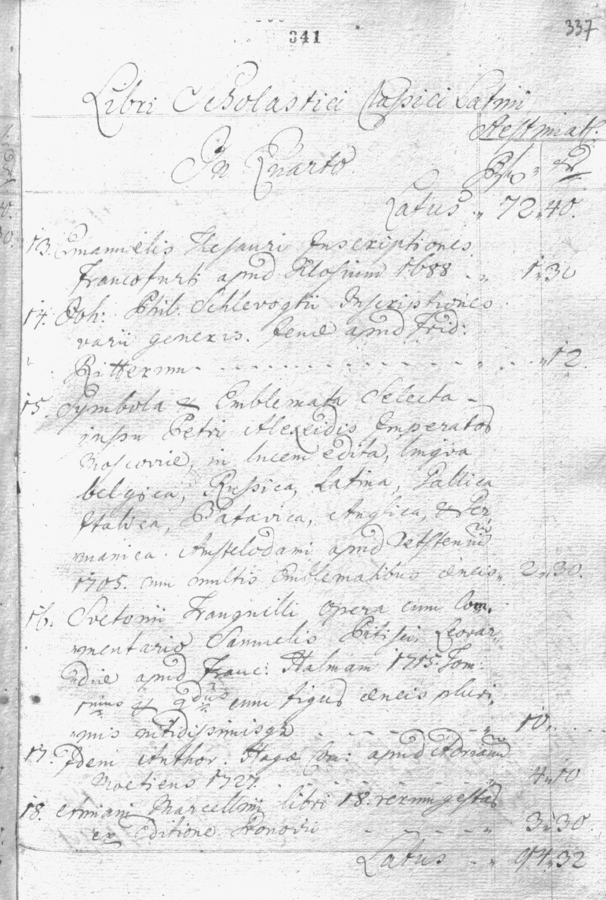 341
337
Libri Scholastici Classici Latini
Aestimat:
In Quarto.
Rf x
Latus " 72 " 40.
13. Emanuelis Thesauri Inscriptiones
Francofurti apud Klosium 1688 " 1 " 30
14. Joh: Phil: Schlevogtii Inscriptiones
varii generis. Jenae apud Frid:
Ritterum " 12.
15. Symbola & Emblemata Selecta
jussu Petri Alexeidis Imperatos
Moscoviae, in lucem edita, lingva
belgica, Russica, Latina, Gallica
Italica, Batavica, Anglica, & Ger
manica. Amstelodami apud Wetstenium
1705. cum multis Emblematibus aeneis " 2 " 30.
16. Svetonii Tranquilli opera cum Com.
mentario Samuelis Pitisci, Leovar
diae apud Franc: Halmam 1715. Tom:
cum figuris aeneis pluri,
mis nitidissimisq 10.
17. Idem Author. Hagae Com: apud Adrianum
Moetiens 1727. 4 " 10
18. Amiani Marcellini libri 18. rerum gestas
ex Editione Gronovii 3 " 30
Latus " 94 " 32